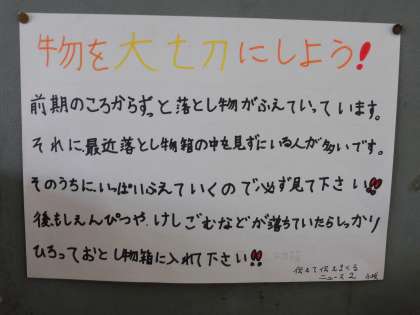 物を大切にしよう!
前期のころからずっと落とし物がふえていっています。
それに、最近落とし物箱の中を見ずにいる人が多いです。
そのうちに、いっぱいふえていくので必ず見て下さい!!
後、もしえんぴつや、けしごむなどが落ちていたらしっかり
ひろっておとし物箱に入れて下さい!!
ニュース2